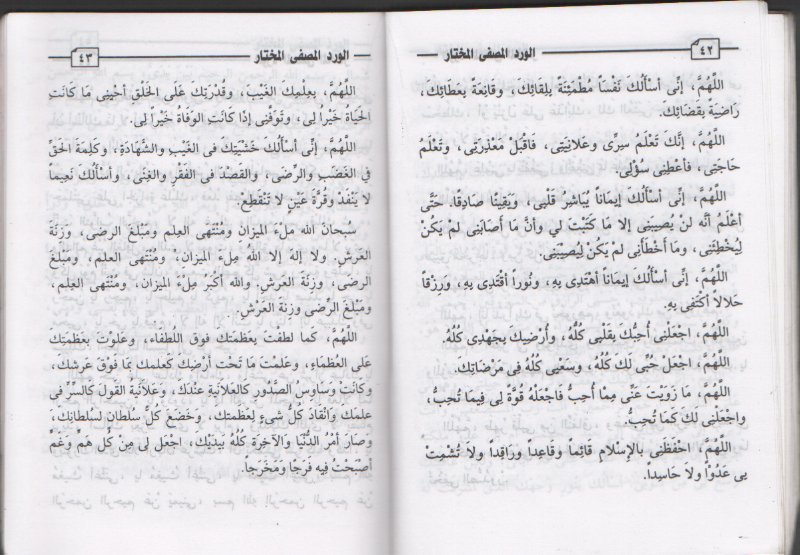 ٤٢ الورد المصفى المختار
اللَّهُمَّ، إِنِّى أَسْأَلُكَ نَفْسًا مُطْمَئِنَّةً بِلِقَائِكَ، وقَانِعَةً بِعَطَائِكَ،
رَاضِيَةً بِقَضَائِكَ.
اللَّهُمَّ، إِنَّكَ تَعْلَمُ سِرِّى وعَلَانِيَتِى، فَاقْبَلْ مَعْذِرَتِى، وتَعْلَمُ
حَاجَتِى، فأَعْطِنِى سُؤْلِى.
اللَّهُمَّ، إِنِّى أَسْأَلُكَ إِيمَاناً يُبَاشِرُ قَلْبِى، ويَقِينًا صَادِقًا، حَتَّى
أَعْلَمُ أَنَّه لَنْ يُصِيبَنِى إلا مَا كَتَبْتَ لِي وأنَّ مَا أَصَابَنِى لَمْ يَكُنْ
لِيُخْطِئَنِى، ومَا أَخْطَأَنِى لَمْ يَكُنْ لِيُصِيْبَنِى.
اللَّهُمَّ، إِنِّى أَسْأَلُكَ إِيمَاناً أَهْتَدِى بِهِ، ونُوراً أَقْتَدِى بِهِ، ورِزْقًا
حَلالاً أَكْتَفِى بِهِ.
اللَّهُمَّ، اجْعَلْنِى أُحِبُّكَ بِقَلْبِى كُلُّهُ، وأُرْضِيكَ بِجَهْدِى كُلُّهُ.
اللَّهُمَّ، اجْعَلْ حُبِّى لَكَ كُلُّهُ، وسَعْيِى كُلُّهُ فِى مَرْضَاتِكَ.
اللَّهُمَّ، مَا زَوَيْتَ عَنِّى مِمَّا أُحِبُّ فَاجْعَلْهُ قُوَّةً لِى فِيمَا تُحِبُّ،
واجْعَلْنِى لَكَ كَمَا تُحِبُّ.
اللَّهُمَّ، احْفَظْنِى بالإِسْلَامِ قَائِماً وقَاعِداً ورَاقِداً ولَا تُشْمِتْ
بِى عَدُوًّا ولَا حَاسِداً.
الورد المصفى المختار ٤٣
اللَّهُمَّ، بِعِلْمِكَ الغَيْبَ، وقُدْرَتِكَ عَلَى الخَلْقِ أَحْيِنِى مَا كَانَتِ
الحَيَاةُ خَيْراً لِى، وتَوَفَّنِى إِذَا كَانَتِ الوَفَاةُ خَيْراً لِى.
اللَّهُمَّ، إِنِّى أَسْأَلُكَ خَشْيَتَكَ فى الغَيْبِ والشَّهَادَةِ، وكَلِمَةَ الحَقِّ
فِى الغَضَبِ والرِّضَى، والقَصْدَ فى الفَقْرِ والغِنَى، وأَسْأَلُكَ نَعِيماً
لا يَنْفَدْ وقُرَّةَ عَيْنٍ لَا تَنْقَطِعُ.
سُبحانَ اللهِ مِلْءَ الميزانِ ومُنْتَهَى العِلمِ ومَبْلغَ الرضَى، وزِنَةَ
العرشِ. ولا إلهَ إلا اللهُ مِلءَ الميزانِ، ومُنْتَهَى العلمِ، ومَبْلغَ
الرضى، وزِنَةَ العَرشِ. والله أَكْبَرُ مِلْءَ الميزان، ومُنْتَهَى العلمِ،
ومَبْلغَ الرِّضى وزِنةَ العَرْشِ.
اللَّهُمَّ، كما لَطَفْتَ بِعَظَمَتِكَ فوقَ اللُّطَفَاءِ، وعَلَوْتَ بِعَظَمَتِكَ
عَلى العُظَمَاءِ، وعَلِمْتَ مَا تَحْتَ أَرْضِكَ كَعلمِكَ بِمَا فَوْقَ عَرشِكَ،
وكَانَتْ وَسَاوِسُ الصُّدُورِ كالعَلَانِيَةِ عِنْدَكَ، وعَلَانِيَةُ القَولِ كَالسِّرِّ فى
عِلمكَ وانْقَادَ كُلُّ شىءٍ لِعَظَمَتِكَ، وخَضَعَ كلُّ سُلْطَانٍ لِسُلطَانِكَ،
وصَارَ أمْرُ الدُّنْيَا والآخِرَةِ كُلُّهُ بِيَدِكَ، اجْعَلْ لِى مِنْ كُلِّ هَمٍّ وغَمٍّ
أَصْبَحْتُ فِيهِ فَرَجًا ومَخْرَجاً.